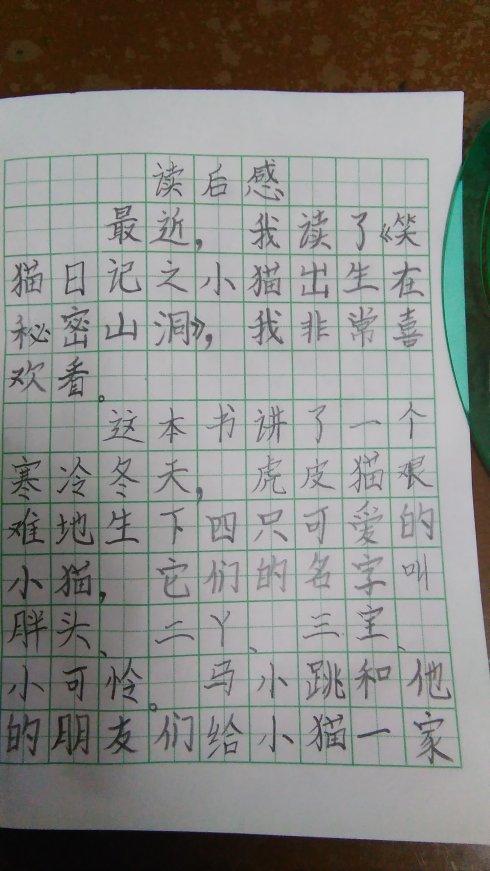 读后感
最近，我读了《笑
猫日记之小猫出生在
秘密山洞》，我非常喜
欢看。
这本书讲了一个
寒冷冬天，虎皮猫艰
难地生下四只可爱的
小猫，它们的名字叫
胖头、二丫、三宝、
小可怜。马小跳和他
的朋友们给小猫一家